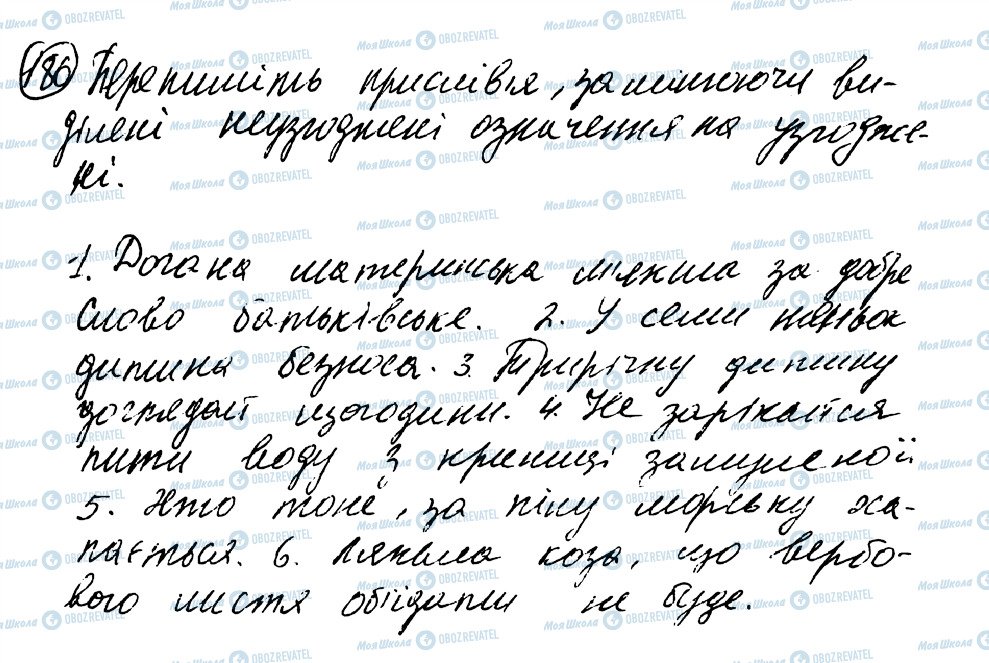 186 Перепишіть прислівя, замінюючи ви-
ділені неузгоджені означення на узгодже-
ні.
1. Догана материнська мʼякша за добре
Слово батьківське. 2. У семи няньок
дитина безноса. 3. Трирічну дитину
доглядай щогодини. 4. Не зарікайся
пити воду з криниці замуленої
5. Хто тоне, за піну морську ха-
пається. 6. коза, що вербо-
вого листя обʼїдати не буде.